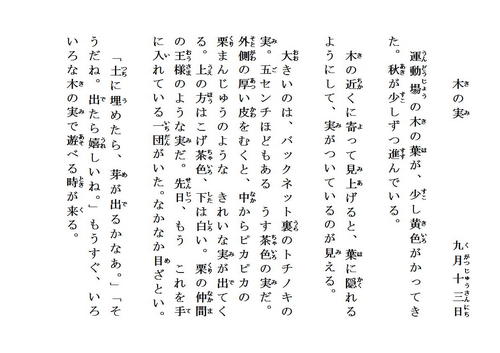 木の実　九月十三日
運動場の木の葉が、少し黄色がかってき
た。秋が少しずつ進んでいる。
木の近くに寄って見上げると、葉に隠れる
ようにして、実がついているのが見える。
大きいのは、バックネット裏のトチノキの
実。五センチほどもある　うす茶色の実だ。
外側の厚い皮をむくと、中からピカピカの
栗まんじゅうのような　きれいな実が出てく
る。上の方はこげ茶色、下は白い。栗の仲間
の王様のような実だ。先日、もう　これを手
に入れている一団がいた。なかなか目ざとい。
「土に埋めたら、芽が出るかなあ。」「そ
うだね。出たら嬉しいね。」もうすぐ、いろ
いろな木の実で遊べる時が来る。